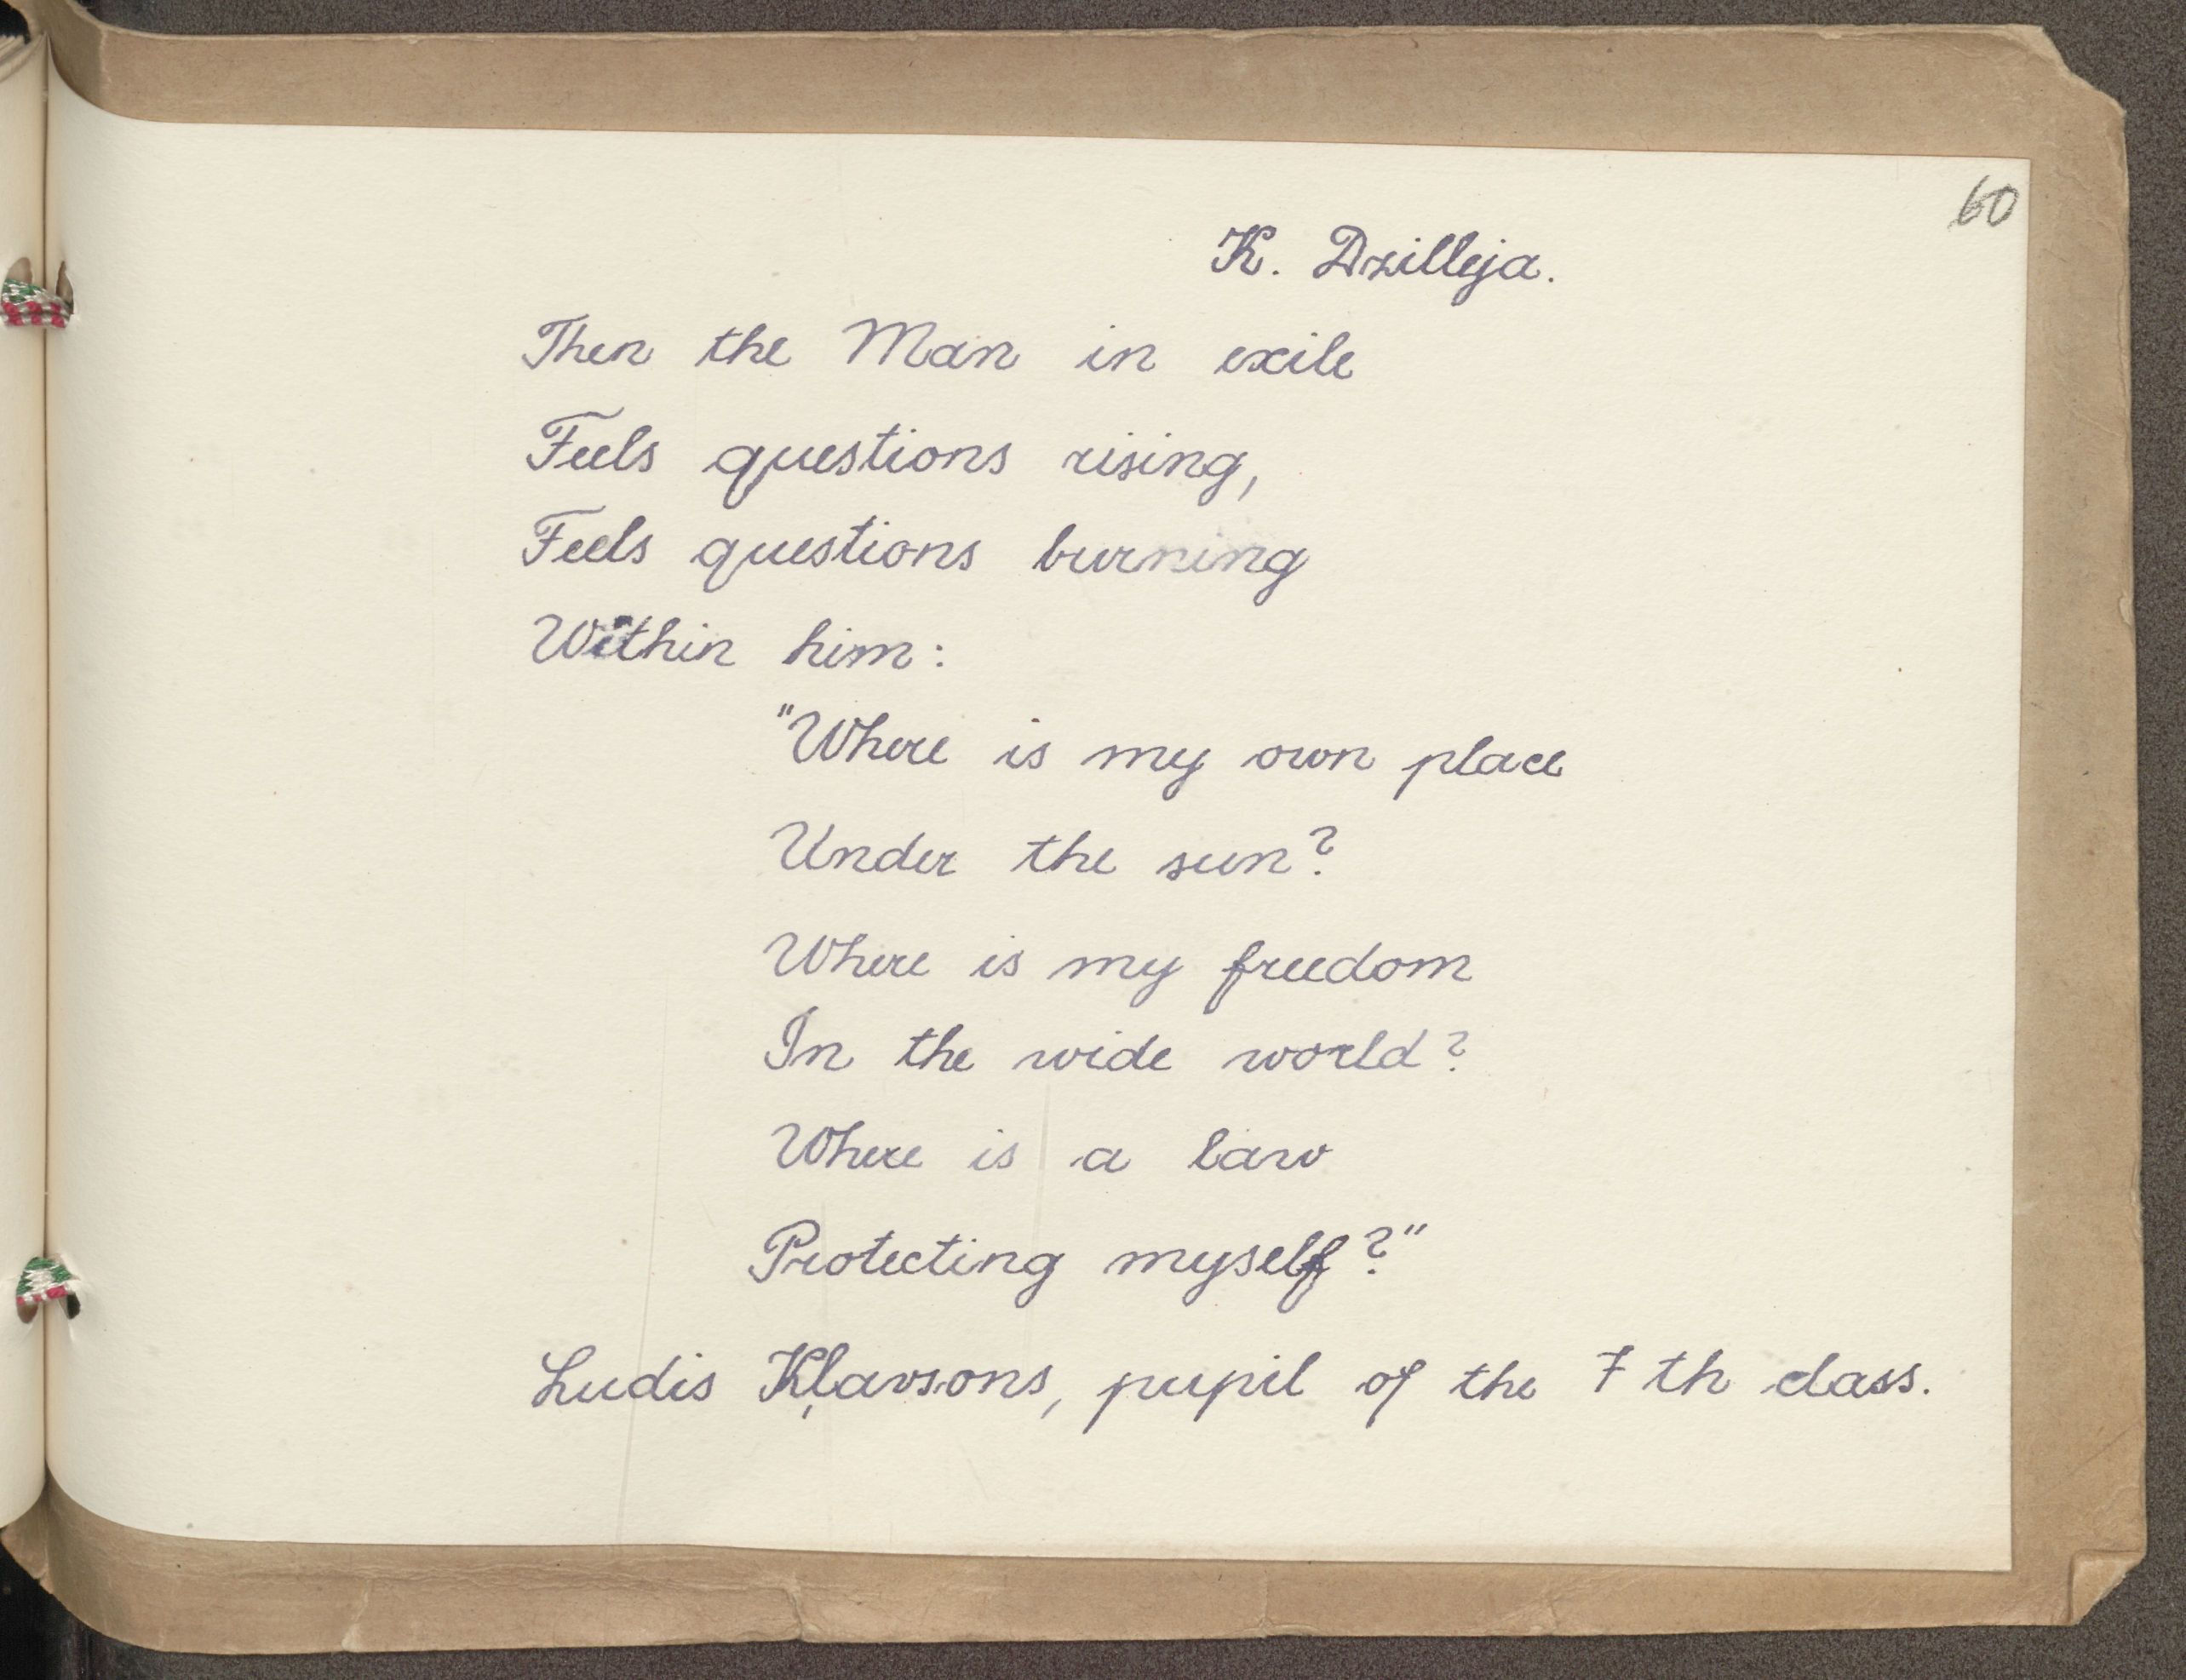 60
K. Dzilleja.
Then the Man in exile
Feels questions rising,
Feels questions burning
Within him:
"Where is my own place
Under the sun?
Where is my freedom
In the wide world?
Where is a law
Protecting myself?"
Ludis Kļavsons, pupil of the 7 th class.